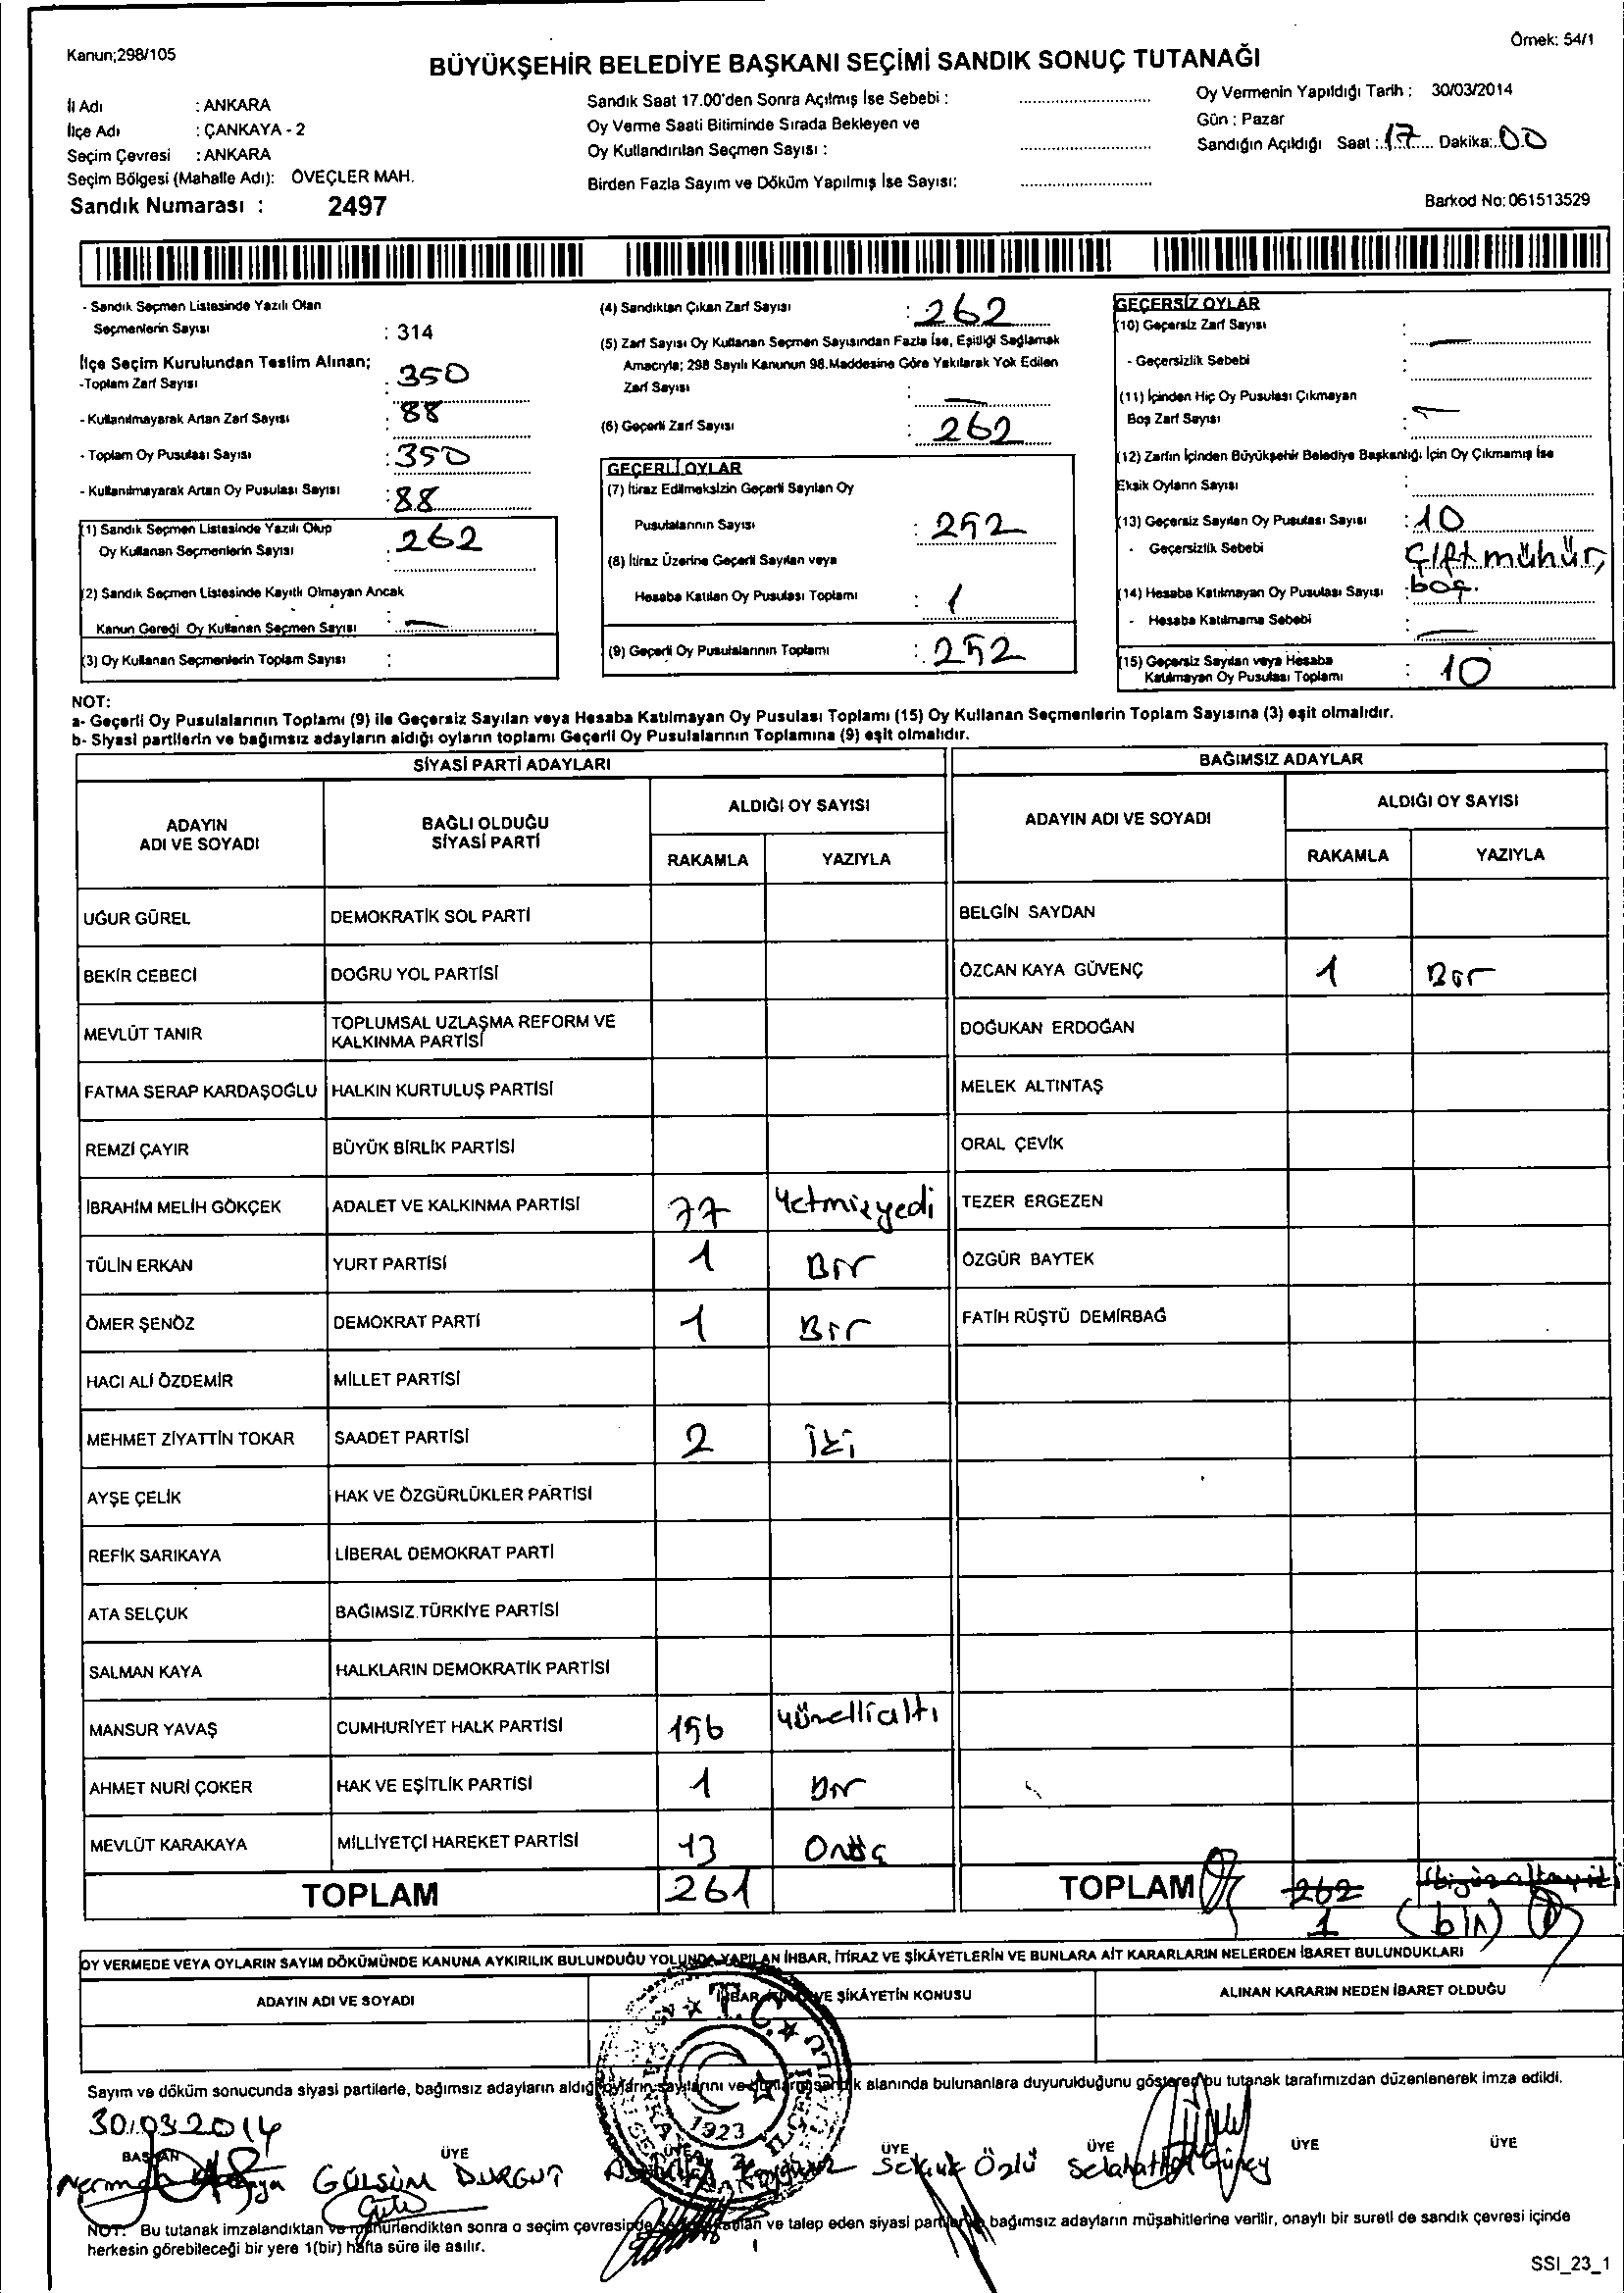 Kanun;298/105
Örnek: 54/1
BÜYÜKŞEHİR BELEDİYE BAŞKANI SEÇİMİ SANDIK SONUÇ TUTANAĞI
İl Adı : ANKARA
İlçe Adı : ÇANKAYA - 2
Seçim Çevresi : ANKARA
Seçim Bölgesi (Mahalle Adı): ÖVEÇLER MAH.
Sandık Numarası : 2497
Sandık Saat 17.00'den Sonra Açılmış İse Sebebi :
Oy Verme Saati Bitiminde Sırada Bekleyen ve
Oy Kullandırılan Seçmen Sayısı :
Birden Fazla Sayım ve Döküm Yapılmış İse Sayısı:
Oy Vermenin Yapıldığı Tarih : 30/03/2014
Gün : Pazar
Sandığın Açıldığı Saat : 17 Dakika: 00
Barkod No: 061513529
- Sandık Seçmen Listesinde Yazılı Olan
Seçmenlerin Sayısı : 314
İlçe Seçim Kurulundan Teslim Alınan;
-Toplam Zarf Sayısı : 350
- Kullanılmayarak Artan Zarf Sayısı : 88
- Toplam Oy Pusulası Sayısı : 350
- Kullanılmayarak Artan Oy Pusulası Sayısı : 88
(1) Sandık Seçmen Listesinde Yazılı Olup
Oy Kullanan Seçmenlerin Sayısı : 262
(2) Sandık Seçmen Listesinde Kayıtlı Olmayan Ancak
Kanun Gereği Oy Kullanan Seçmen Sayısı : —
(3) Oy Kullanan Seçmenlerin Toplam Sayısı :
(4) Sandıktan Çıkan Zarf Sayısı : 262
(5) Zarf Sayısı Oy Kullanan Seçmen Sayısından Fazla İse, Eşitliği Sağlamak
Amacıyla; 298 Sayılı Kanunun 98.Maddesine Göre Yakılarak Yok Edilen
Zarf Sayısı : —
(6) Geçerli Zarf Sayısı : 262
GEÇERLİ OYLAR
(7) İtiraz Edilmeksizin Geçerli Sayılan Oy
Pusulalarının Sayısı : 252
(8) İtiraz Üzerine Geçerli Sayılan veya
Hesaba Katılan Oy Pusulası Toplamı : /
(9) Geçerli Oy Pusulalarının Toplamı : 252
GEÇERSİZ OYLAR
(10) Geçersiz Zarf Sayısı : —
- Geçersizlik Sebebi :
(11) İçinden Hiç Oy Pusulası Çıkmayan
Boş Zarf Sayısı : —
(12) Zarfın İçinden Büyükşehir Belediye Başkanlığı İçin Oy Çıkmamış İse
Eksik Oyların Sayısı :
(13) Geçersiz Sayılan Oy Pusulası Sayısı : 10
- Geçersizlik Sebebi Çift mühür,
boş.
(14) Hesaba Katılmayan Oy Pusulası Sayısı :
- Hesaba Katılmama Sebebi : —
(15) Geçersiz Sayılan veya Hesaba
Katılmayan Oy Pusulası Toplamı : 10
NOT:
a- Geçerli Oy Pusulalarının Toplamı (9) ile Geçersiz Sayılan veya Hesaba Katılmayan Oy Pusulası Toplamı (15) Oy Kullanan Seçmenlerin Toplam Sayısına (3) eşit olmalıdır.
b- Siyasi partilerin ve bağımsız adayların aldığı oyların toplamı Geçerli Oy Pusulalarının Toplamına (9) eşit olmalıdır.
SİYASİ PARTİ ADAYLARI
ADAYIN
ADI VE SOYADI
BAĞLI OLDUĞU
SİYASİ PARTİ
ALDIĞI OY SAYISI
RAKAMLA YAZIYLA
UĞUR GÜREL DEMOKRATİK SOL PARTİ
BEKİR CEBECİ DOĞRU YOL PARTİSİ
MEVLÜT TANIR TOPLUMSAL UZLAŞMA REFORM VE
KALKINMA PARTİSİ
FATMA SERAP KARDAŞOĞLU HALKIN KURTULUŞ PARTİSİ
REMZİ ÇAYIR BÜYÜK BİRLİK PARTİSİ
İBRAHİM MELİH GÖKÇEK ADALET VE KALKINMA PARTİSİ 77 Yetmişyedi
TÜLİN ERKAN YURT PARTİSİ 1 Bir
ÖMER ŞENÖZ DEMOKRAT PARTİ 1 Bir
HACI ALİ ÖZDEMİR MİLLET PARTİSİ
MEHMET ZİYATTİN TOKAR SAADET PARTİSİ 2 İki
AYŞE ÇELİK HAK VE ÖZGÜRLÜKLER PARTİSİ
REFİK SARIKAYA LİBERAL DEMOKRAT PARTİ
ATA SELÇUK BAĞIMSIZ TÜRKİYE PARTİSİ
SALMAN KAYA HALKLARIN DEMOKRATİK PARTİSİ
MANSUR YAVAŞ CUMHURİYET HALK PARTİSİ 156 yüzelliialtı
AHMET NURİ ÇOKER HAK VE EŞİTLİK PARTİSİ 1 Bir
MEVLÜT KARAKAYA MİLLİYETÇİ HAREKET PARTİSİ 13 Onüç
TOPLAM 261
BAĞIMSIZ ADAYLAR
ADAYIN ADI VE SOYADI
ALDIĞI OY SAYISI
RAKAMLA YAZIYLA
BELGİN SAYDAN
ÖZCAN KAYA GÜVENÇ 1 Bir
DOĞUKAN ERDOĞAN
MELEK ALTINTAŞ
ORAL ÇEVİK
TEZER ERGEZEN
ÖZGÜR BAYTEK
FATİH RÜŞTÜ DEMİRBAĞ
TOPLAM 262
1 (bir)
OY VERMEDE VEYA OYLARIN SAYIM DÖKÜMÜNDE KANUNA AYKIRILIK BULUNDUĞU YOLUNDA YAPILAN İHBAR, İTİRAZ VE ŞİKÂYETLERİN VE BUNLARA AİT KARARLARIN NELERDEN İBARET BULUNDUKLARI
ADAYIN ADI VE SOYADI
İHBAR, İTİRAZ VE ŞİKÂYETİN KONUSU
ALINAN KARARIN NEDEN İBARET OLDUĞU
T.C.
1923
Sayım ve döküm sonucunda siyasi partilerle, bağımsız adayların aldığı oyların sayılarını ve sandık alanında bulunanlara duyurulduğunu gösteren bu tutanak tarafımızdan düzenlenerek imza edildi.
30.03.2014
BAŞKAN ÜYE ÜYE ÜYE ÜYE ÜYE ÜYE
GÜLSÜM DURGUT Selçuk Özlü Selahattin Güney
NOT: Bu tutanak imzalandıktan ve mühürlendikten sonra o seçim çevresinde katılan ve talep eden siyasi parti bağımsız adayların müşahitlerine verilir, onaylı bir sureti de sandık çevresi içinde
herkesin görebileceği bir yere 1(bir) hafta süre ile asılır.
SSI_23_1